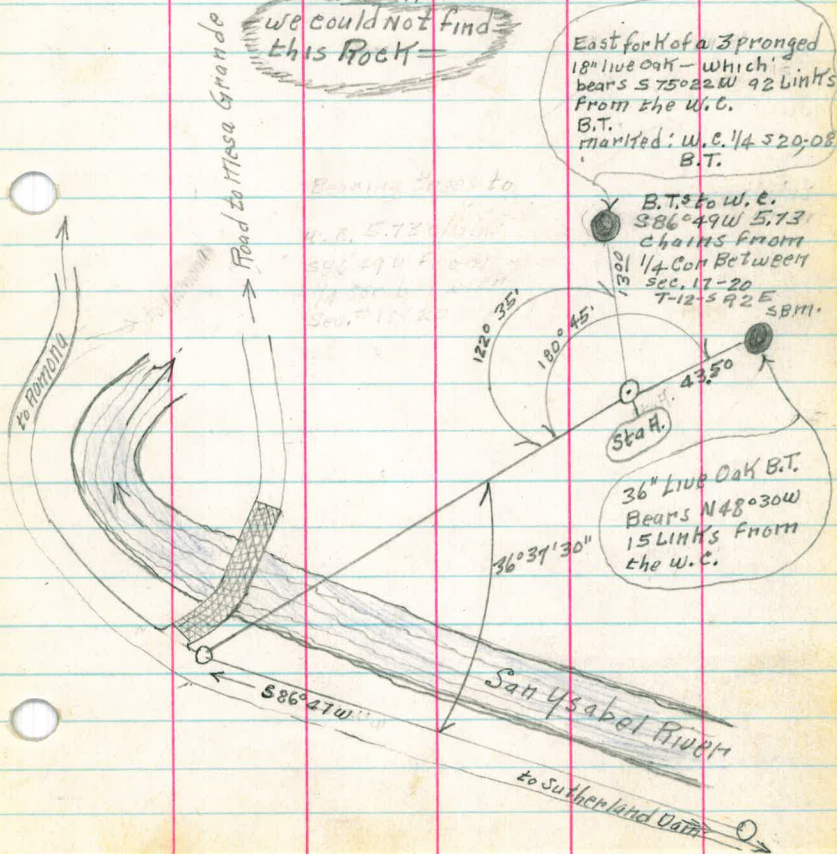 we could not find
this Rock=
East fork of a 3 pronged
18" live oak - which
bears S 75°22W 92 Links
From the W.C.
B.T.
marked: W.C. 1/4 S20,08
B.T.
Road to Mesa Grande
B.T.s to W.C.
S86°49W 5.73
chains From
1/4 Cor Between
Sec. 17-20
T-12-S R2E
S.B.M.
Bearing Trees to
W.C. 5.73
S86 49W From
1/4 Cor
Sec. 17-20
to Ramona
to Ramona
122° 35'
180° 45'
1300
43.50
Sta A.
36" Live Oak B.T.
Bears N48°30W
15 Links From
the W.C.
36°37'30"
S86°47W
San Ysabel River
to Sutherland Dam